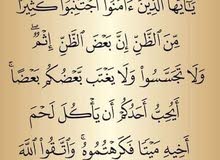 يَـٰٓأَيُّهَا ٱلَّذِينَ ءَامَنُوا۟ ٱجْتَنِبُوا۟ كَثِيرًا
مِّنَ ٱلظَّنِّ إِنَّ بَعْضَ ٱلظَّنِّ إِثْمٌ ۖ
وَلَا تَجَسَّسُوا۟ وَلَا يَغْتَب بَّعْضُكُم بَعْضًا ۚ
أَيُحِبُّ أَحَدُكُمْ أَن يَأْكُلَ لَحْمَ
أَخِيهِ مَيْتًا فَكَرِهْتُمُوهُ ۚ وَٱتَّقُوا۟ ٱللَّهَ